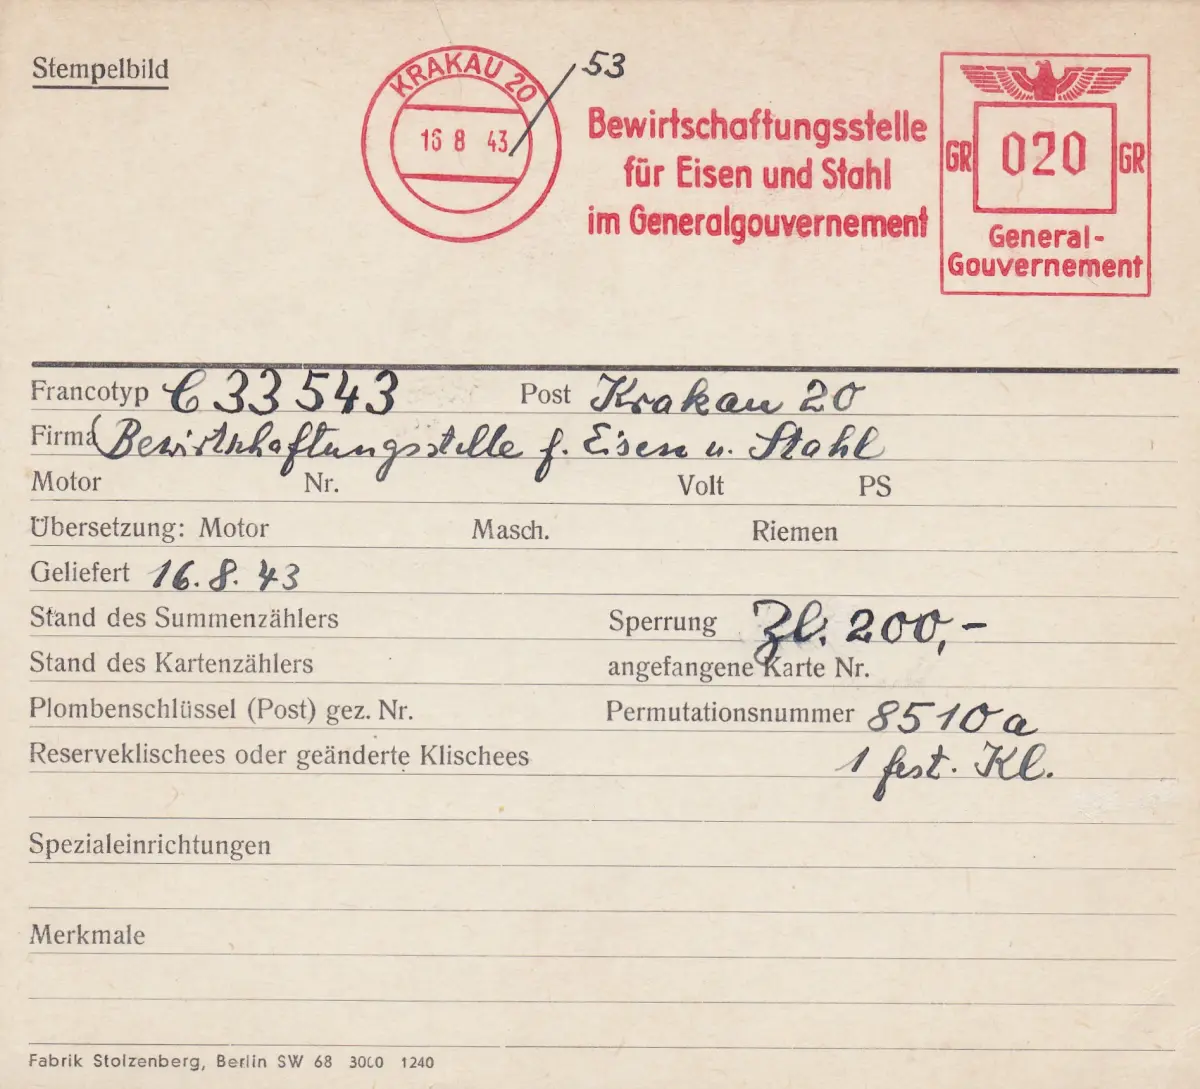 Stempelbild
KRAKAU 20
16 8 43
53
Bewirtschaftungsstelle
für Eisen und Stahl
im Generalgouvernement
GR 020 GR
General-
Gouvernement
Francotyp C 33543 Post Krakau 20
Firma Bewirtschaftungsstelle f. Eisen u. Stahl
Motor Nr. Volt PS
Übersetzung: Motor Masch. Riemen
Geliefert 16. 8. 43
Stand des Summenzählers Sperrung Zl. 200,-
Stand des Kartenzählers angefangene Karte Nr.
Plombenschlüssel (Post) gez. Nr. Permutationsnummer 8510 a
Reserveklischees oder geänderte Klischees 1 fest. Kl.
Spezialeinrichtungen
Merkmale
Fabrik Stolzenberg, Berlin SW 68 3000 1240